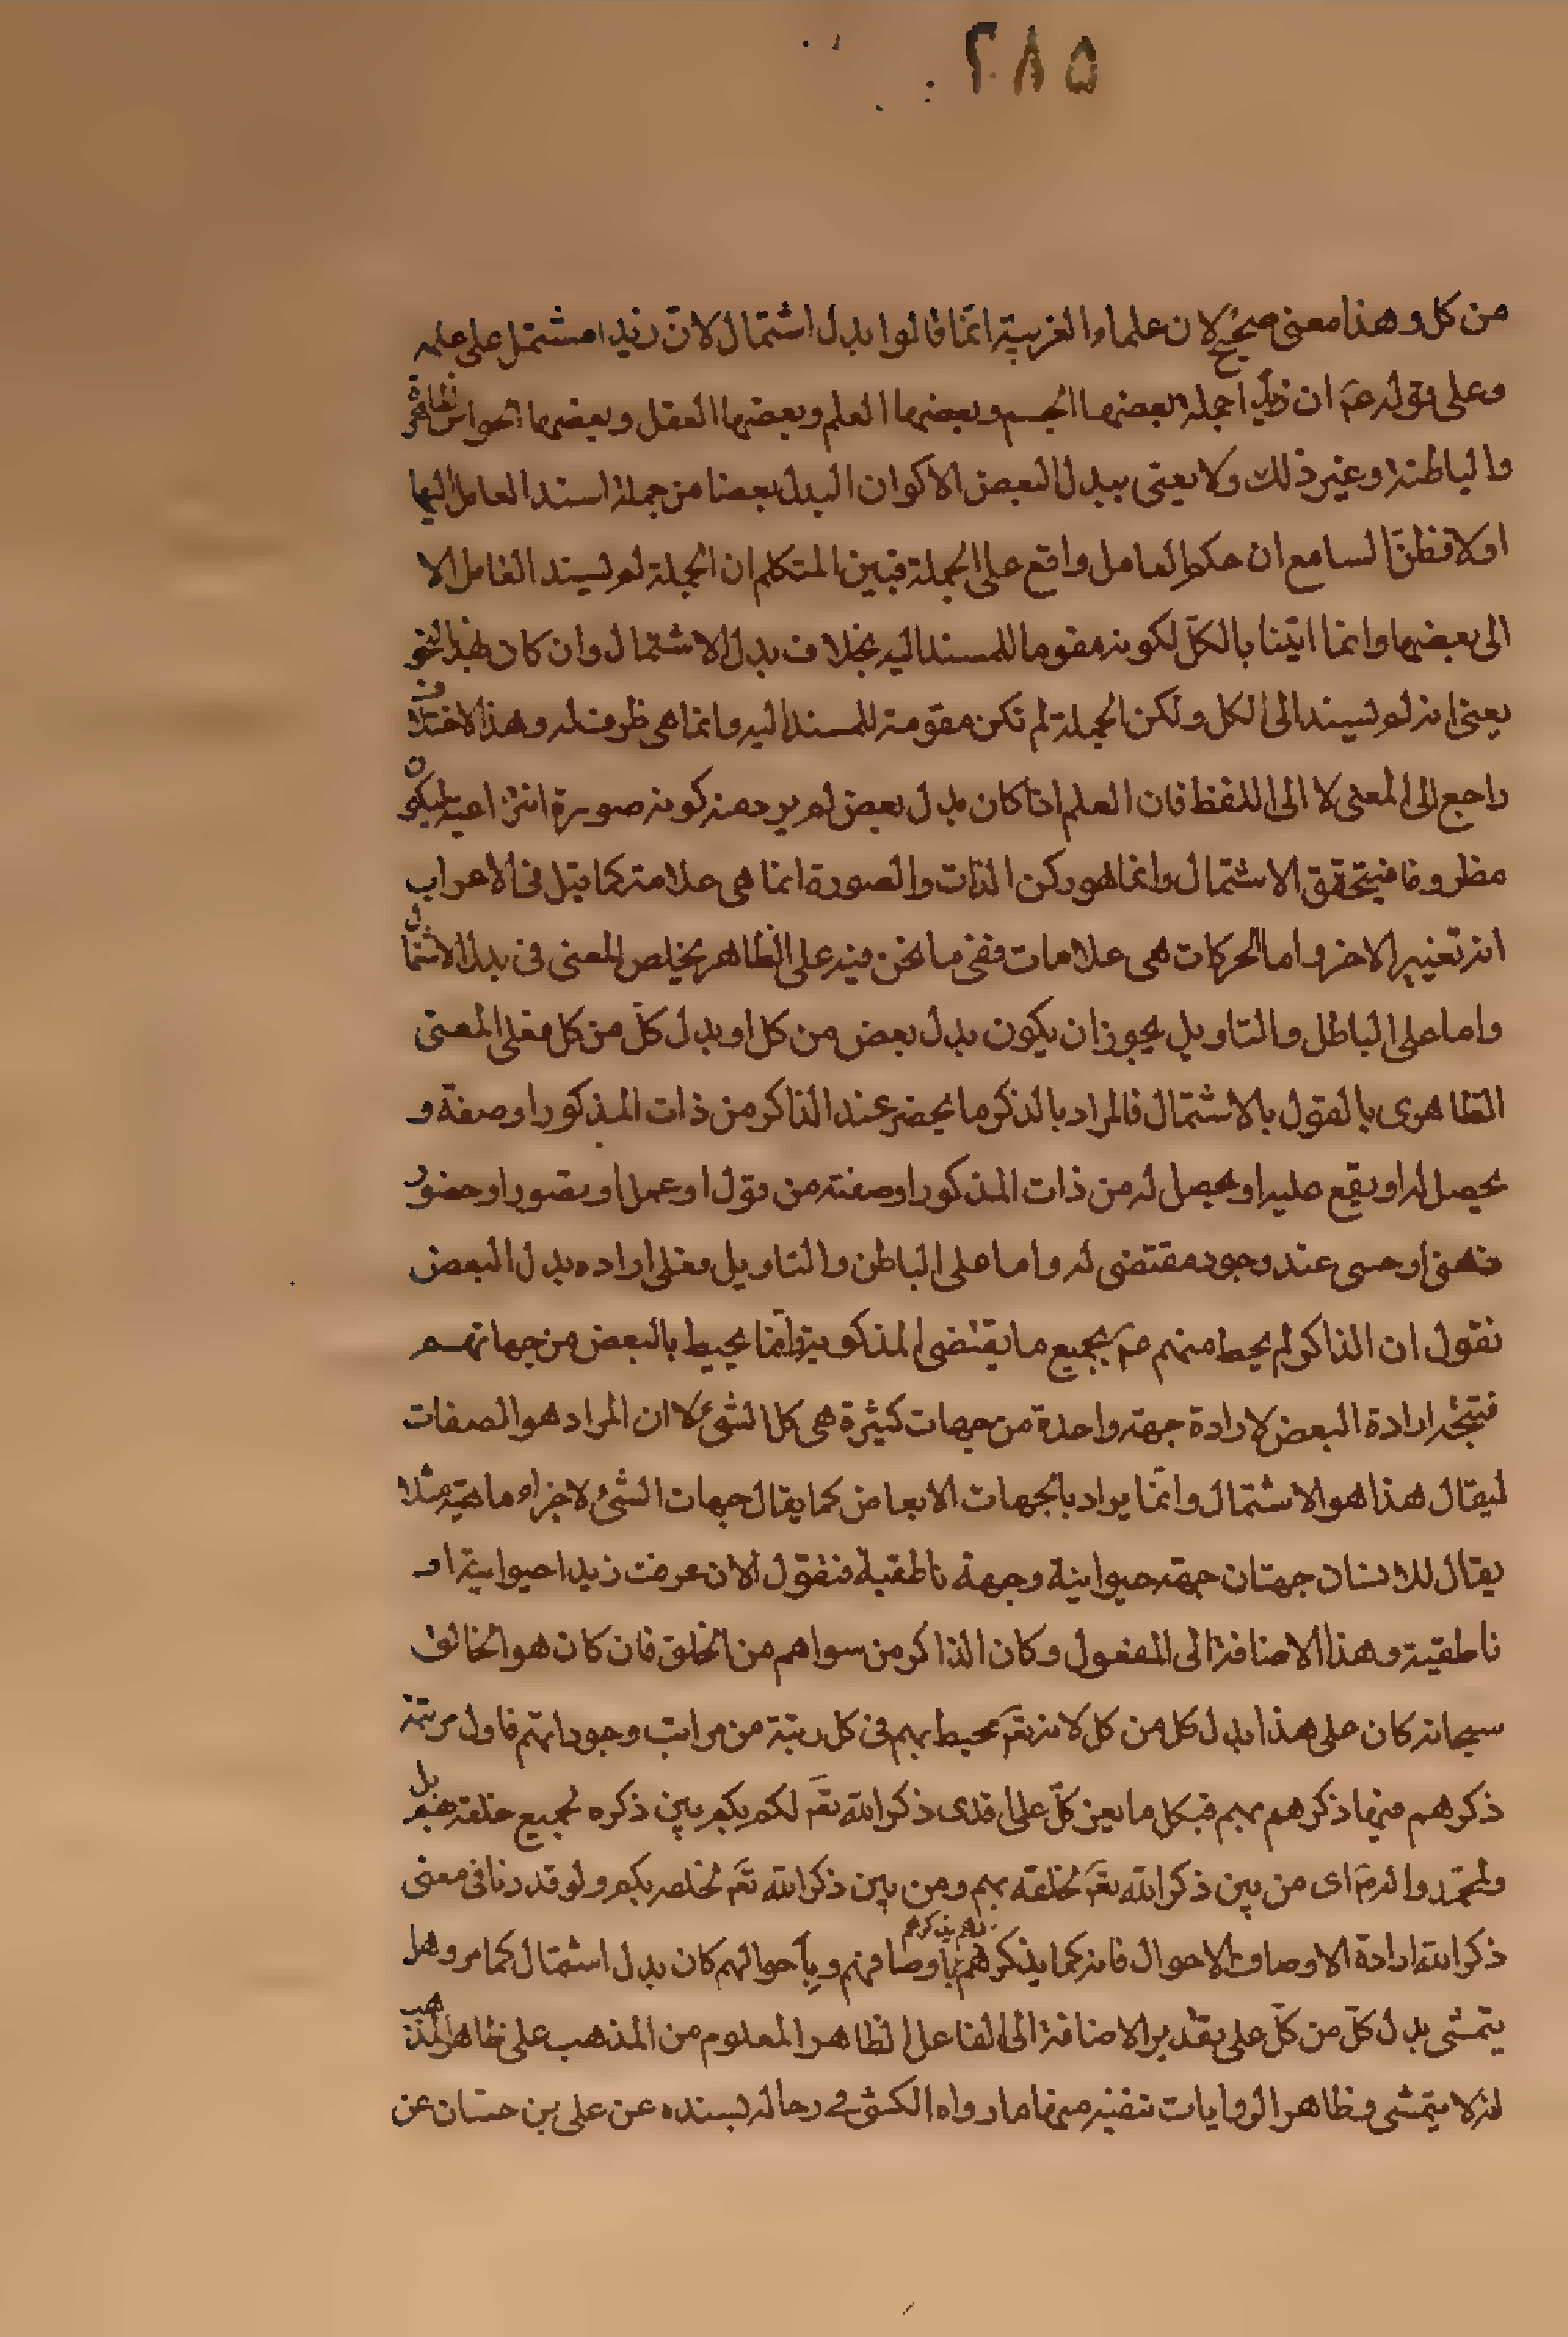 ٢٨٥
من كل و هذا معنى صحيح لان علماء العربية انّما قالوا بدل اشتمال لانّ زيدا مشتمل على علمه
وعلى قوله عم ان زيدا جملة بعضها الجسم وبعضها العلم وبعضها العقل وبعضها الحواس الظاهرة
والباطنة وغير ذلك ولا يعنى ببدل البعض الا كون البدل بعضا من جملة اسند العامل اليها
اولا فظنّ السامع ان حكم العامل واقع على الجملة فبين المتكلم ان الجملة لم يسند العامل الا
الى بعضها وانما اتينا بالكلّ لكونه مقوما للمسند اليه بخلاف بدل الاشتمال وان كان بهذا النحو
يعنى انه لم يسند الى الكل ولكن الجملة لم تكن مقومة للمسند اليه وانما هى ظرف له وهذا الاختلاف
راجع الى المعنى لا الى اللفظ فان العلم اذا كان بدل بعض لم يرد منه كونه صورة انتزاعية ليكون
مظروفا فيتحقق الاشتمال وانما هو ركن الذات والصورة انما هى علامته كما قيل فى الاعراب
انه تغيير الاخر واما الحركات هى علامات ففى ما نحن فيه على الظاهر يخلص المعنى فى بدل الاشتمال
واما على الباطل والتاويل يجوز ان يكون بدل بعض من كل او بدل كلّ من كل فعلى المعنى
الظاهرى بالقول بالاشتمال فالمراد بالذكر ما يحضر عند الذاكر من ذات المذكور او صفة و
يحصل له او يقع عليه او يحصل له من ذات المذكور او صفته من قول او عمل او تصور او حضور
ذهنى او حسى عند وجود مقتضى له واما على الباطن والتاويل فعلى اراده بدل البعض
نقول ان الذاكر لم يحط منهم عم بجميع ما يقتضى المذكورية وانّما يحيط بالبعض من جهاتهم
فتتجه ارادة البعض لارادة جهة واحدة من جهات كثيرة هى كل الشئ لا ان المراد هو الصفات
ليقال هذا هو الاشتمال وانّما يراد بالجهات الابعاض كما يقال جهات الشئ لاجزاء ماهيّته مثلا
يقال للانسان جهتان جهة حيوانية وجهة ناطقية فنقول الان عرفت زيدا حيوانيته او
ناطقيته وهذا الاضافة الى المفعول وكان الذاكر من سواهم من الخلق فان كان هو الخالق
سبحانه كان على هذا بدل كل من كل لانه تعَ محيط بهم فى كل رتبة من مراتب وجوداتهم فاول مرتبة
ذكرهم فيها ذكرهم بهم فبكل ما يعن كلّ على ذكر الله تعَ لكم بكم بين ذكره لجميع خلقه
ولمحمّد واله عم اى من بين ذكر الله تعَ لخلقه بهم ومن بين ذكر الله تعَ لخلصه بكم ولو قدرنا فى معنى
ذكر الله ارادة الاوصاف والاحوال فانه كما يذكرهم بهم يذكرهم باوصافهم وباحوالهم كان بدل اشتمال كما مر وهل
يتمشى بدل كلّ من كلّ على تقدير الاضافة الى الفاعل الظاهر المعلوم من المذهب على ظاهر المذهب
انه لا يتمشى وظاهر الروايات فمنها ما رواه الكشى فى رجاله بسنده عن على بن حسّان عن